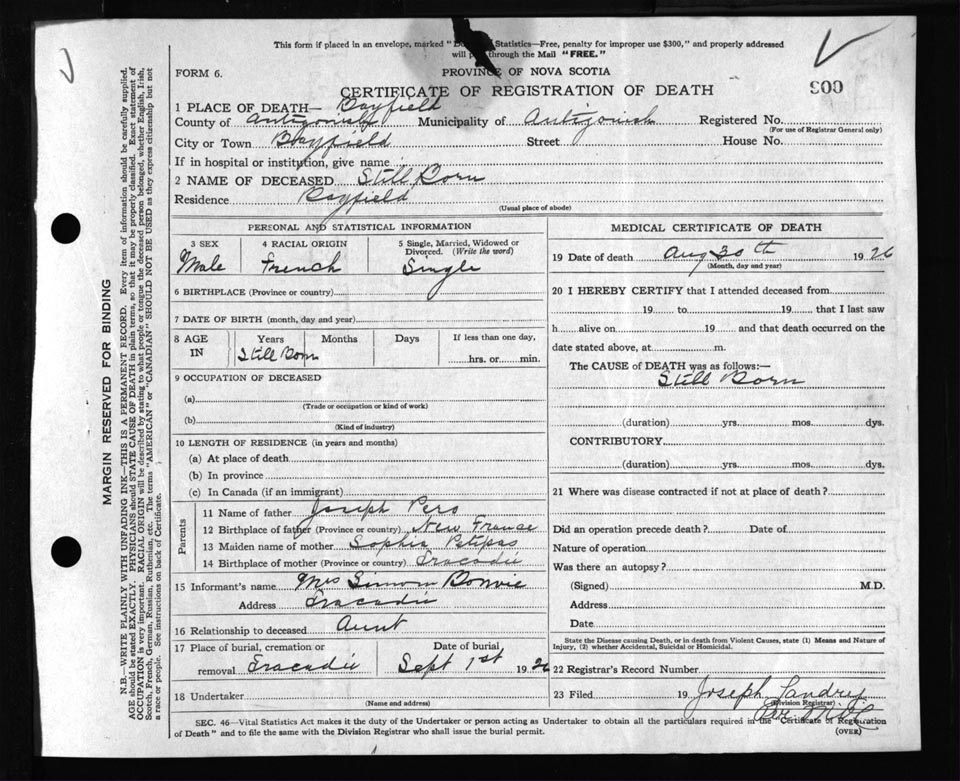 This form if placed in an envelope, marked " of Statistics—Free, penalty for improper use $300," and properly addressed
will through the Mail "FREE."
FORM 6.
PROVINCE OF NOVA SCOTIA
CERTIFICATE OF REGISTRATION OF DEATH
900
1 PLACE OF DEATH— Bayfield
County of Antigonish Municipality of Antigonish Registered No.
(For use of Registrar General only)
City or Town Bayfield Street House No.
If in hospital or institution, give name
2 NAME OF DECEASED Still Born
Residence Bayfield
(Usual place of abode)
PERSONAL AND STATISTICAL INFORMATION
3 SEX 4 RACIAL ORIGIN 5 Single, Married, Widowed or
Divorced. (Write the word)
Male French Single
6 BIRTHPLACE (Province or country)
7 DATE OF BIRTH (month, day and year)
8 AGE Years Months Days If less than one day,
IN Still Born hrs. or min.
9 OCCUPATION OF DECEASED
(a)
(Trade or occupation or kind of work)
(b)
(Kind of industry)
10 LENGTH OF RESIDENCE (in years and months)
(a) At place of death
(b) In province
(c) In Canada (if an immigrant)
Parents
11 Name of father Joseph Pero
12 Birthplace of father (Province or country) New France
13 Maiden name of mother Sophia Petipas
14 Birthplace of mother (Province or country) Tracadie
15 Informant's name Mrs Simon Bonvie
Address Tracadie
16 Relationship to deceased Aunt
17 Place of burial, cremation or Date of burial
removal Tracadie Sept 1st 1926
18 Undertaker
(Name and address)
MEDICAL CERTIFICATE OF DEATH
19 Date of death Aug 30th 1926
(Month, day and year)
20 I HEREBY CERTIFY that I attended deceased from
19 to 19 that I last saw
h alive on 19 and that death occurred on the
date stated above, at m.
The CAUSE of DEATH was as follows:—
Still Born
(duration) yrs. mos. dys.
CONTRIBUTORY
(duration) yrs. mos. dys.
21 Where was disease contracted if not at place of death?
Did an operation precede death? Date of
Nature of operation
Was there an autopsy?
(Signed) M.D.
Address
Date
State the Disease causing Death, or in death from Violent Causes, state (1) Means and Nature of
Injury, (2) whether Accidental, Suicidal or Homicidal.
22 Registrar's Record Number
23 Filed 19 Joseph Landry
(Division Registrar)
SEC. 46—Vital Statistics Act makes it the duty of the Undertaker or person acting as Undertaker to obtain all the particulars required in the Certificate of Registration
of Death" and to file the same with the Division Registrar who shall issue the burial permit.
(OVER)
MARGIN RESERVED FOR BINDING
N.B.—WRITE PLAINLY WITH UNFADING INK—THIS IS A PERMANENT RECORD. Every item of information should be carefully supplied.
AGE should be stated EXACTLY. PHYSICIANS should STATE CAUSE OF DEATH in plain terms, so that it may be properly classified. Exact statement of
OCCUPATION is very important. RACIAL ORIGIN will be described by stating to what people or tongue the deceased person belonged, whether English, Irish,
Scotch, French, German, Russian, Ruthenian, etc. The terms "AMERICAN" or "CANADIAN" SHOULD NOT BE USED as they express citizenship but not
a race or people. See instructions on back of Certificate.